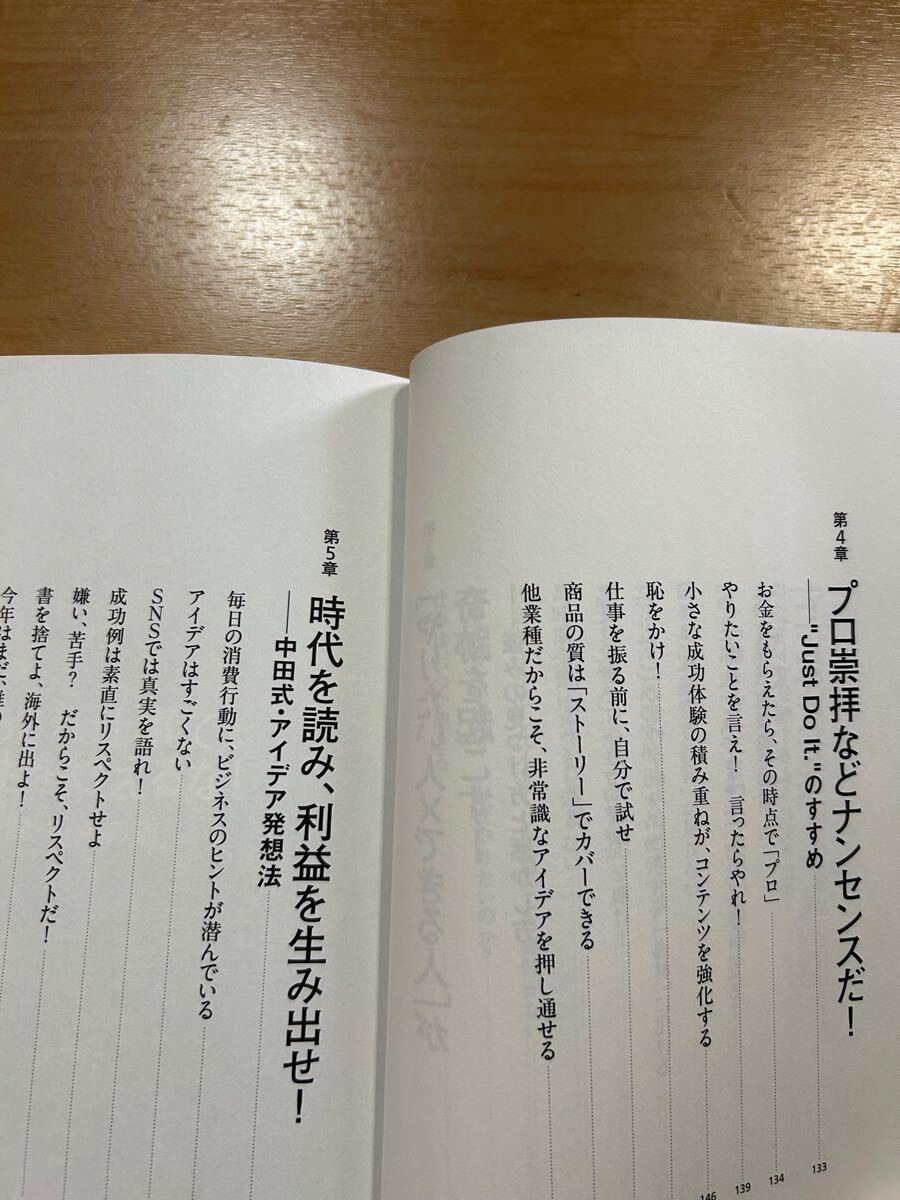 第4章
プロ崇拝などナンセンスだ！
――"Just Do It."のすすめ 133
お金をもらえたら、その時点で「プロ」 134
やりたいことを言え！　言ったらやれ！ 139
小さな成功体験の積み重ねが、コンテンツを強化する 146
恥をかけ！
仕事を振る前に、自分で試せ
商品の質は「ストーリー」でカバーできる
他業種だからこそ、非常識なアイデアを押し通せる
第5章
時代を読み、利益を生み出せ！
――中田式・アイデア発想法
毎日の消費行動に、ビジネスのヒントが潜んでいる
アイデアはすごくない
SNSでは真実を語れ！
成功例は素直にリスペクトせよ
嫌い、苦手？　だからこそ、リスペクトだ！
書を捨てよ、海外に出よ！
今年はまだ、